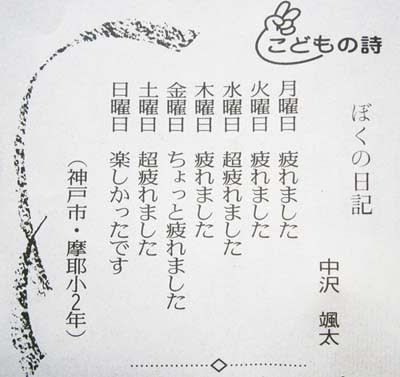 こどもの詩
ぼくの日記
中沢 颯太
月曜日 疲れました
火曜日 疲れました
水曜日 超疲れました
木曜日 疲れました
金曜日 ちょっと疲れました
土曜日 超疲れました
日曜日 楽しかったです
（神戸市・摩耶小2年）